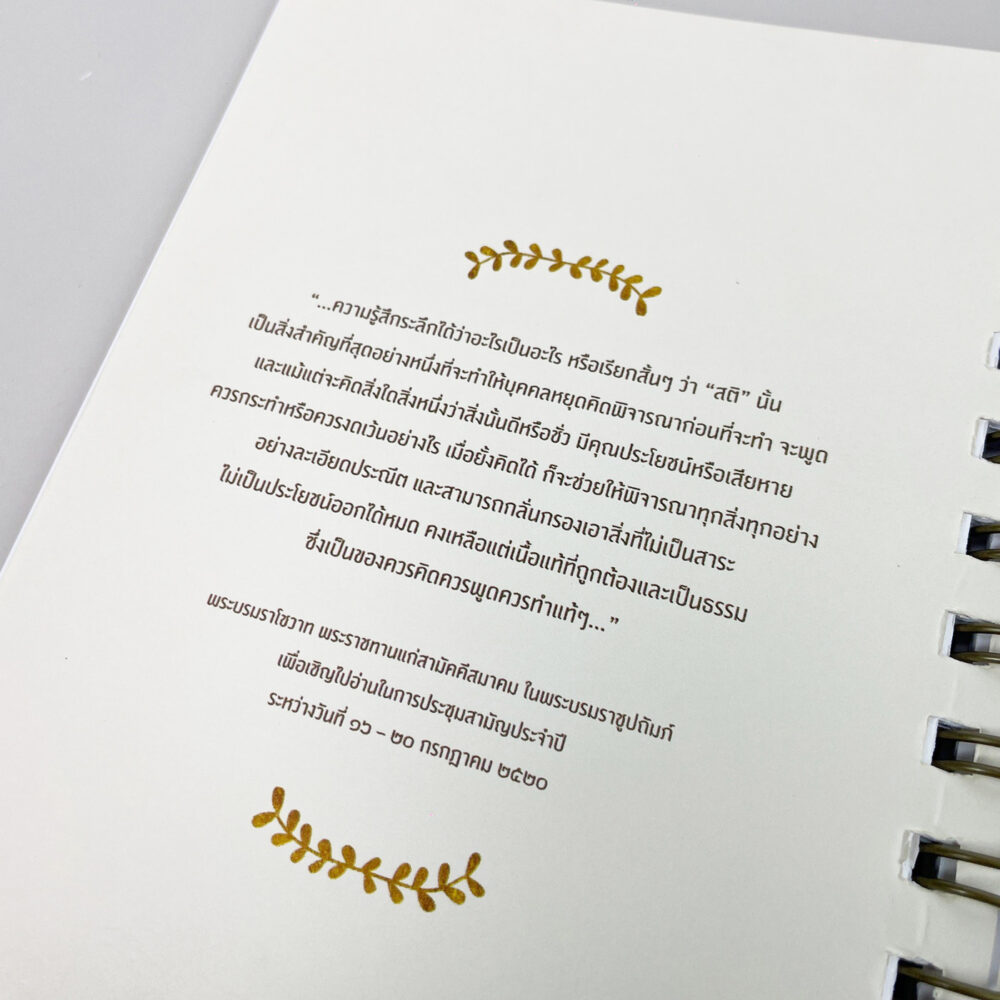 “...ความรู้สึกระลึกได้ว่าอะไรเป็นอะไร หรือเรียกสั้นๆ ว่า “สติ” นั้น
เป็นสิ่งสำคัญที่สุดอย่างหนึ่งที่จะทำให้บุคคลหยุดคิดพิจารณาก่อนที่จะทำ จะพูด
และแม้แต่จะคิดสิ่งใดสิ่งหนึ่งว่าสิ่งนั้นดีหรือชั่ว มีคุณประโยชน์หรือเสียหาย
ควรกระทำหรือควรงดเว้นอย่างไร เมื่อยั้งคิดได้ ก็จะช่วยให้พิจารณาทุกสิ่งทุกอย่าง
อย่างละเอียดประณีต และสามารถกลั่นกรองเอาสิ่งที่ไม่เป็นสาระ
ไม่เป็นประโยชน์ออกได้หมด คงเหลือแต่เนื้อแท้ที่ถูกต้องและเป็นธรรม
ซึ่งเป็นของควรคิดควรพูดควรทำแท้ๆ...”
พระบรมราโชวาท พระราชทานแก่สามัคคีสมาคม ในพระบรมราชูปถัมภ์
เพื่อเชิญไปอ่านในการประชุมสามัญประจำปี
ระหว่างวันที่ ๑๖ - ๒๐ กรกฎาคม ๒๕๒๐